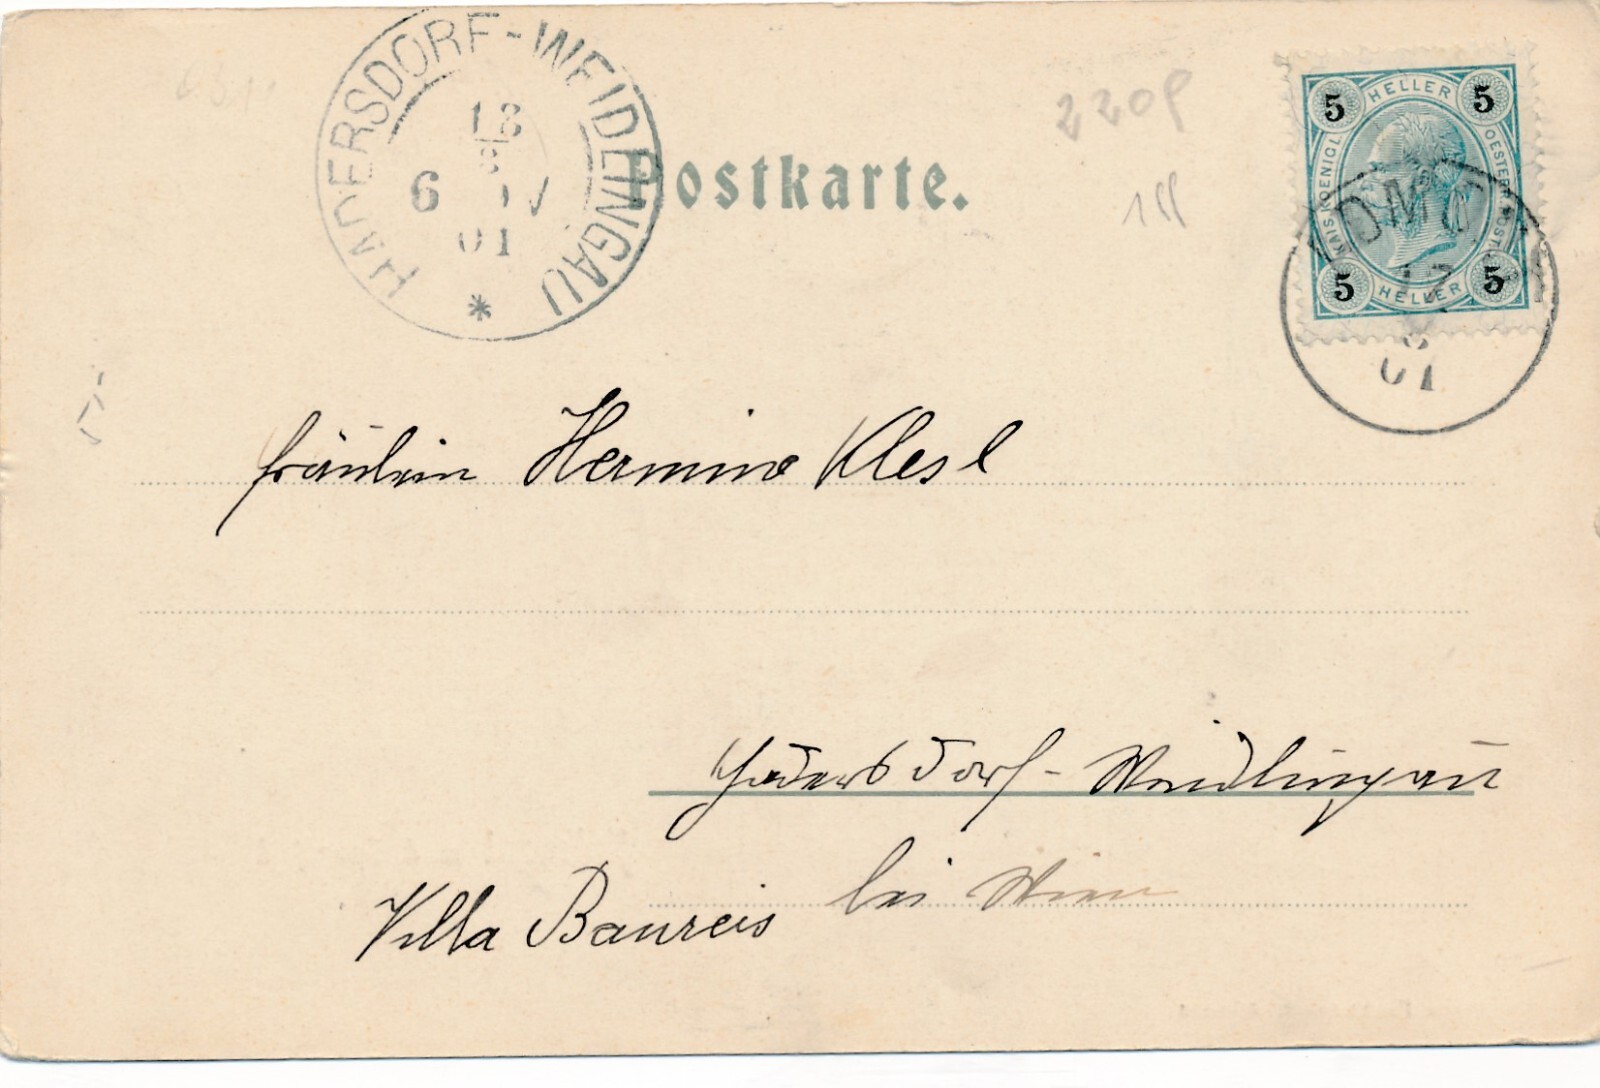 HADERSDORF-WEIDLINGAU
6
01
Postkarte.
2209
5 HELLER 5
KAIS KOENIGL OESTERR POST
5 HELLER 5
17
01
Fräulein Hermine Klesl
Hadersdorf-Weidlingau
bei Wien
Villa Baureis